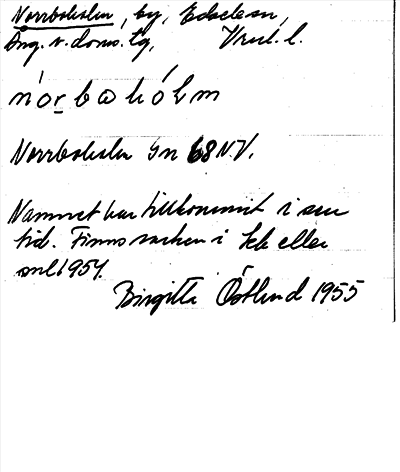 Norrboholm, by, Edselem,
Ång. v. doms. tg, l.
nórbahólm
Norrboholm Gn 68 N.V.
Namnet har tillkommit i sen
tid. Finns varken i eller
1954.
Birgitta Östlund 1955